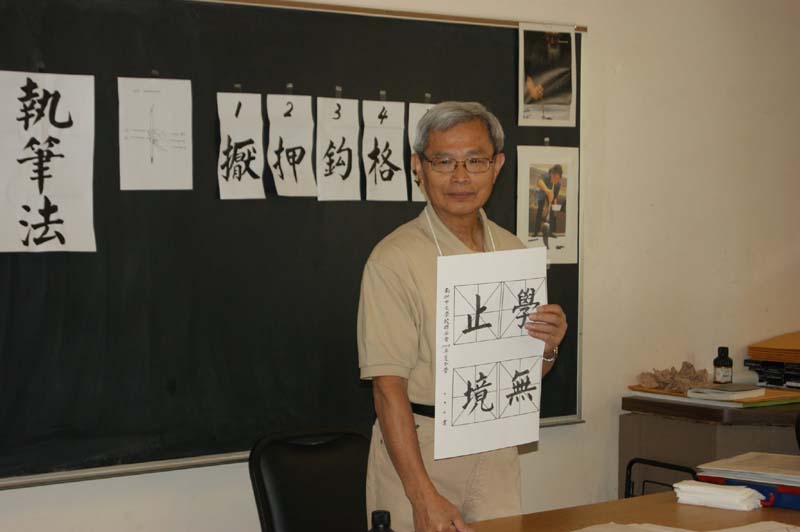 執筆法
1
擫
2
押
3
鈎
4
格
學無
止境